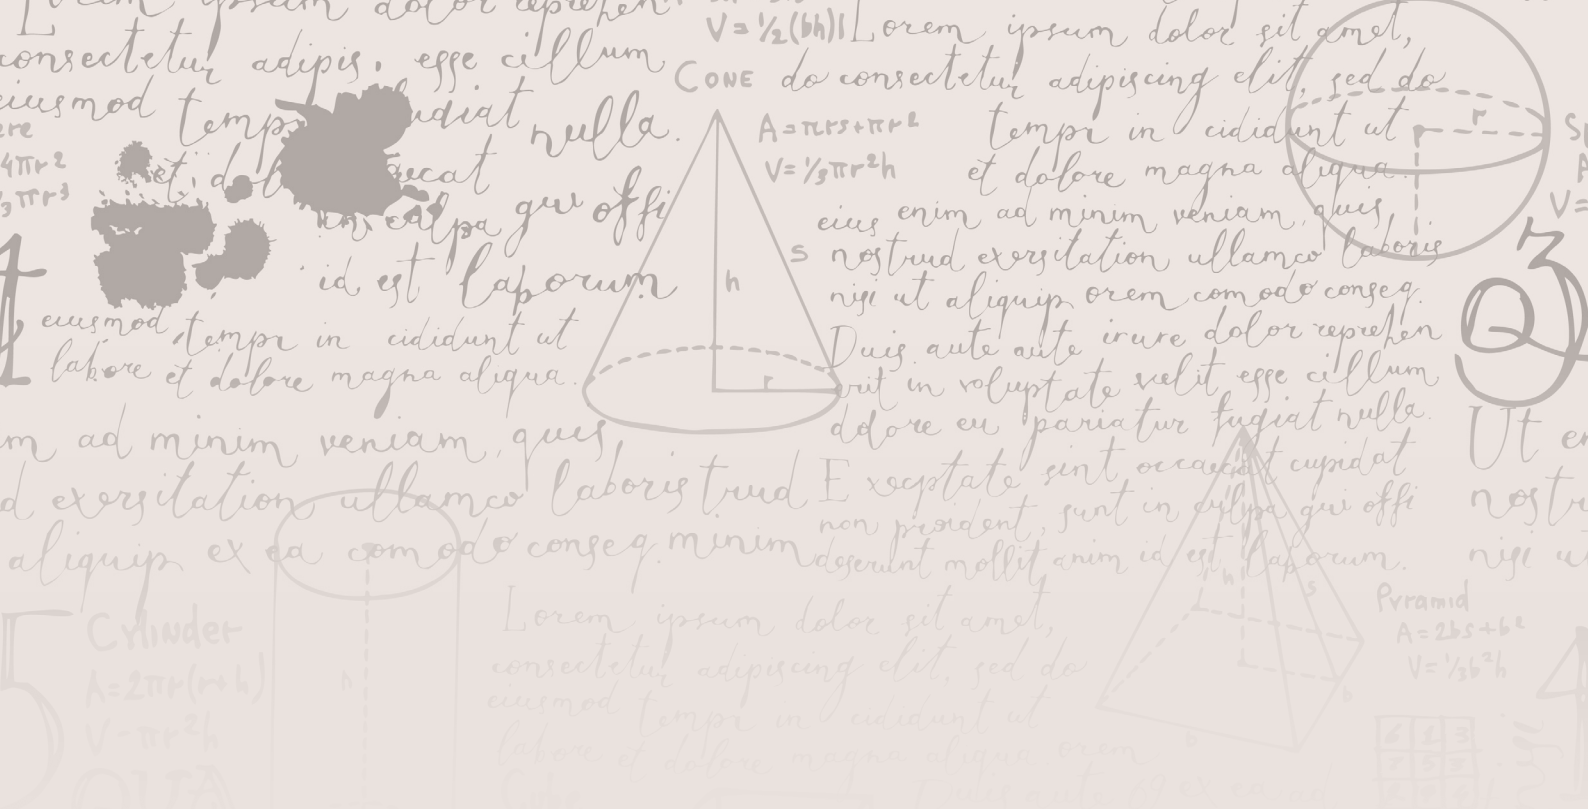 Lorem ipsum dolor reprehen
consectetur adipis. esse cillum
eiusmod
nulla.
et
qui offi
id est laborum
eiusmod tempr in cididunt ut
labore et dolore magna aliqua.
m ad minim veniam, quis,
d exersitation ullamco laboris trud
aliquip ex ea com odo conseq. minim
ere
4πr²
πr³
V=½(bh)l
CONE
A=πrs+πr²
V=⅓πr²h
s
h
r
Lorem ipsum dolor sit amet,
do consectetur adipiscing elit, sed do
tempr in cididunt ut
et dolore magna aliqua.
eius enim ad minim veniam, quis,
nostrud exersitation ullamco laboris
nisi ut aliquip orem comodo conseq.
Duis aute aute irure dolor reprehen
erit in voluptate velit esse cillum
dolore eu pariatur fugiat nulla.
Excptate sint occaecat cupidat
non proident, sunt in culpa qui offi
deserunt mollit anim id est laborum.
r
3
Q
Ut en
nostr
nisi u
Cylinder
A=2πr(r+h)
V=πr²h
h
Lorem ipsum dolor sit amet,
consectetur adipiscing elit, sed do
eiusmod tempr in cididunt ut
labore et dolore magna aliqua orem
h
s
b
b
Pyramid
A=2bs+b²
V=⅓b²h
4
5